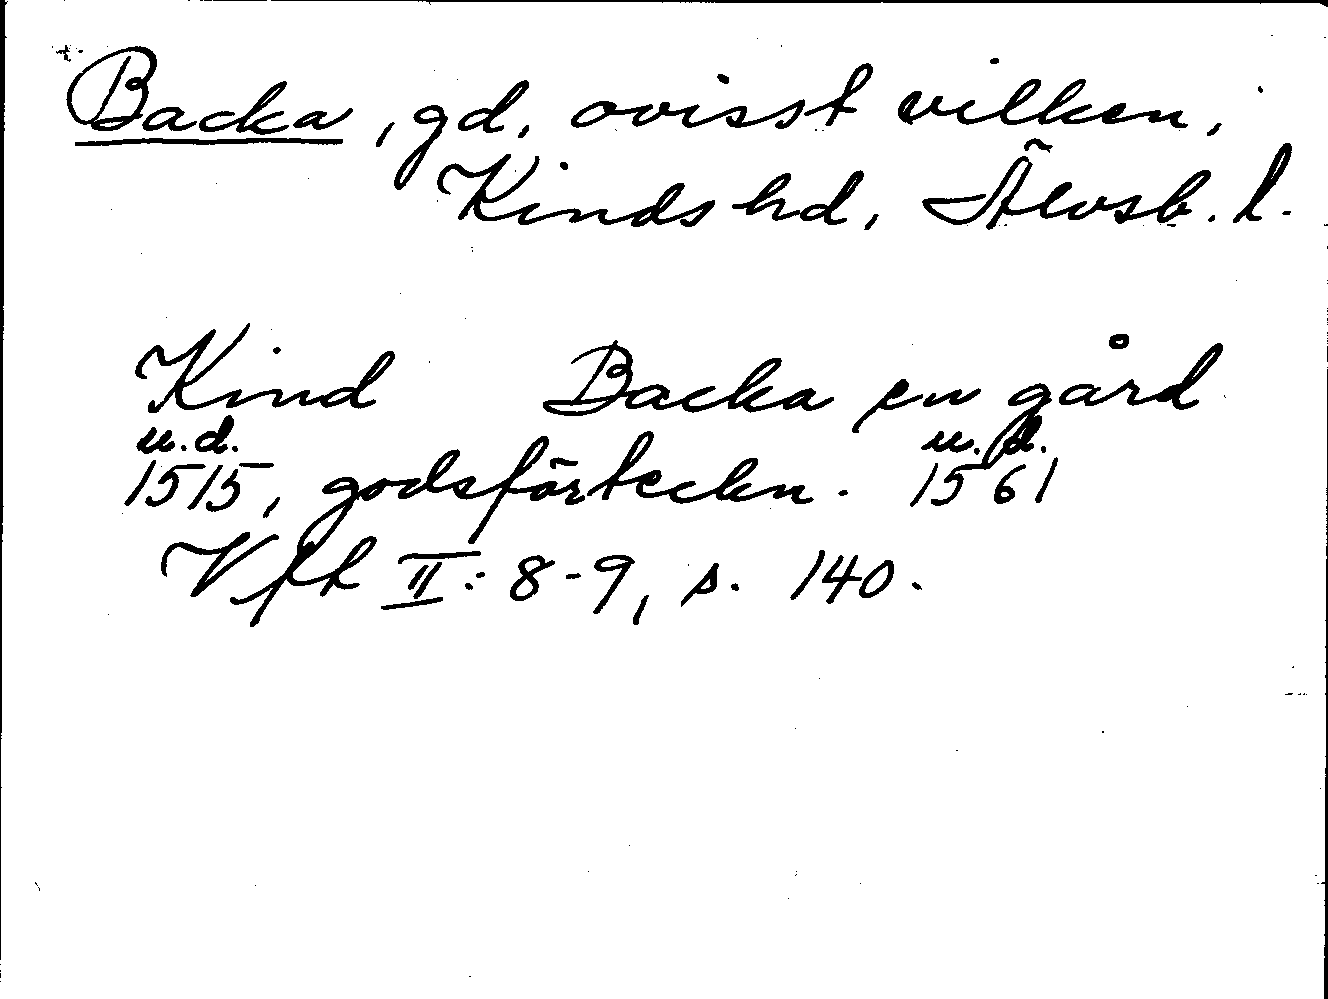 Backa, gd, ovisst vilken,
Kinds hd, Älvsb. l.
Kind Backa en gård
u.d. u.d.
1515, godsförteckn. 1561
Vfh II: 8-9, s. 140.